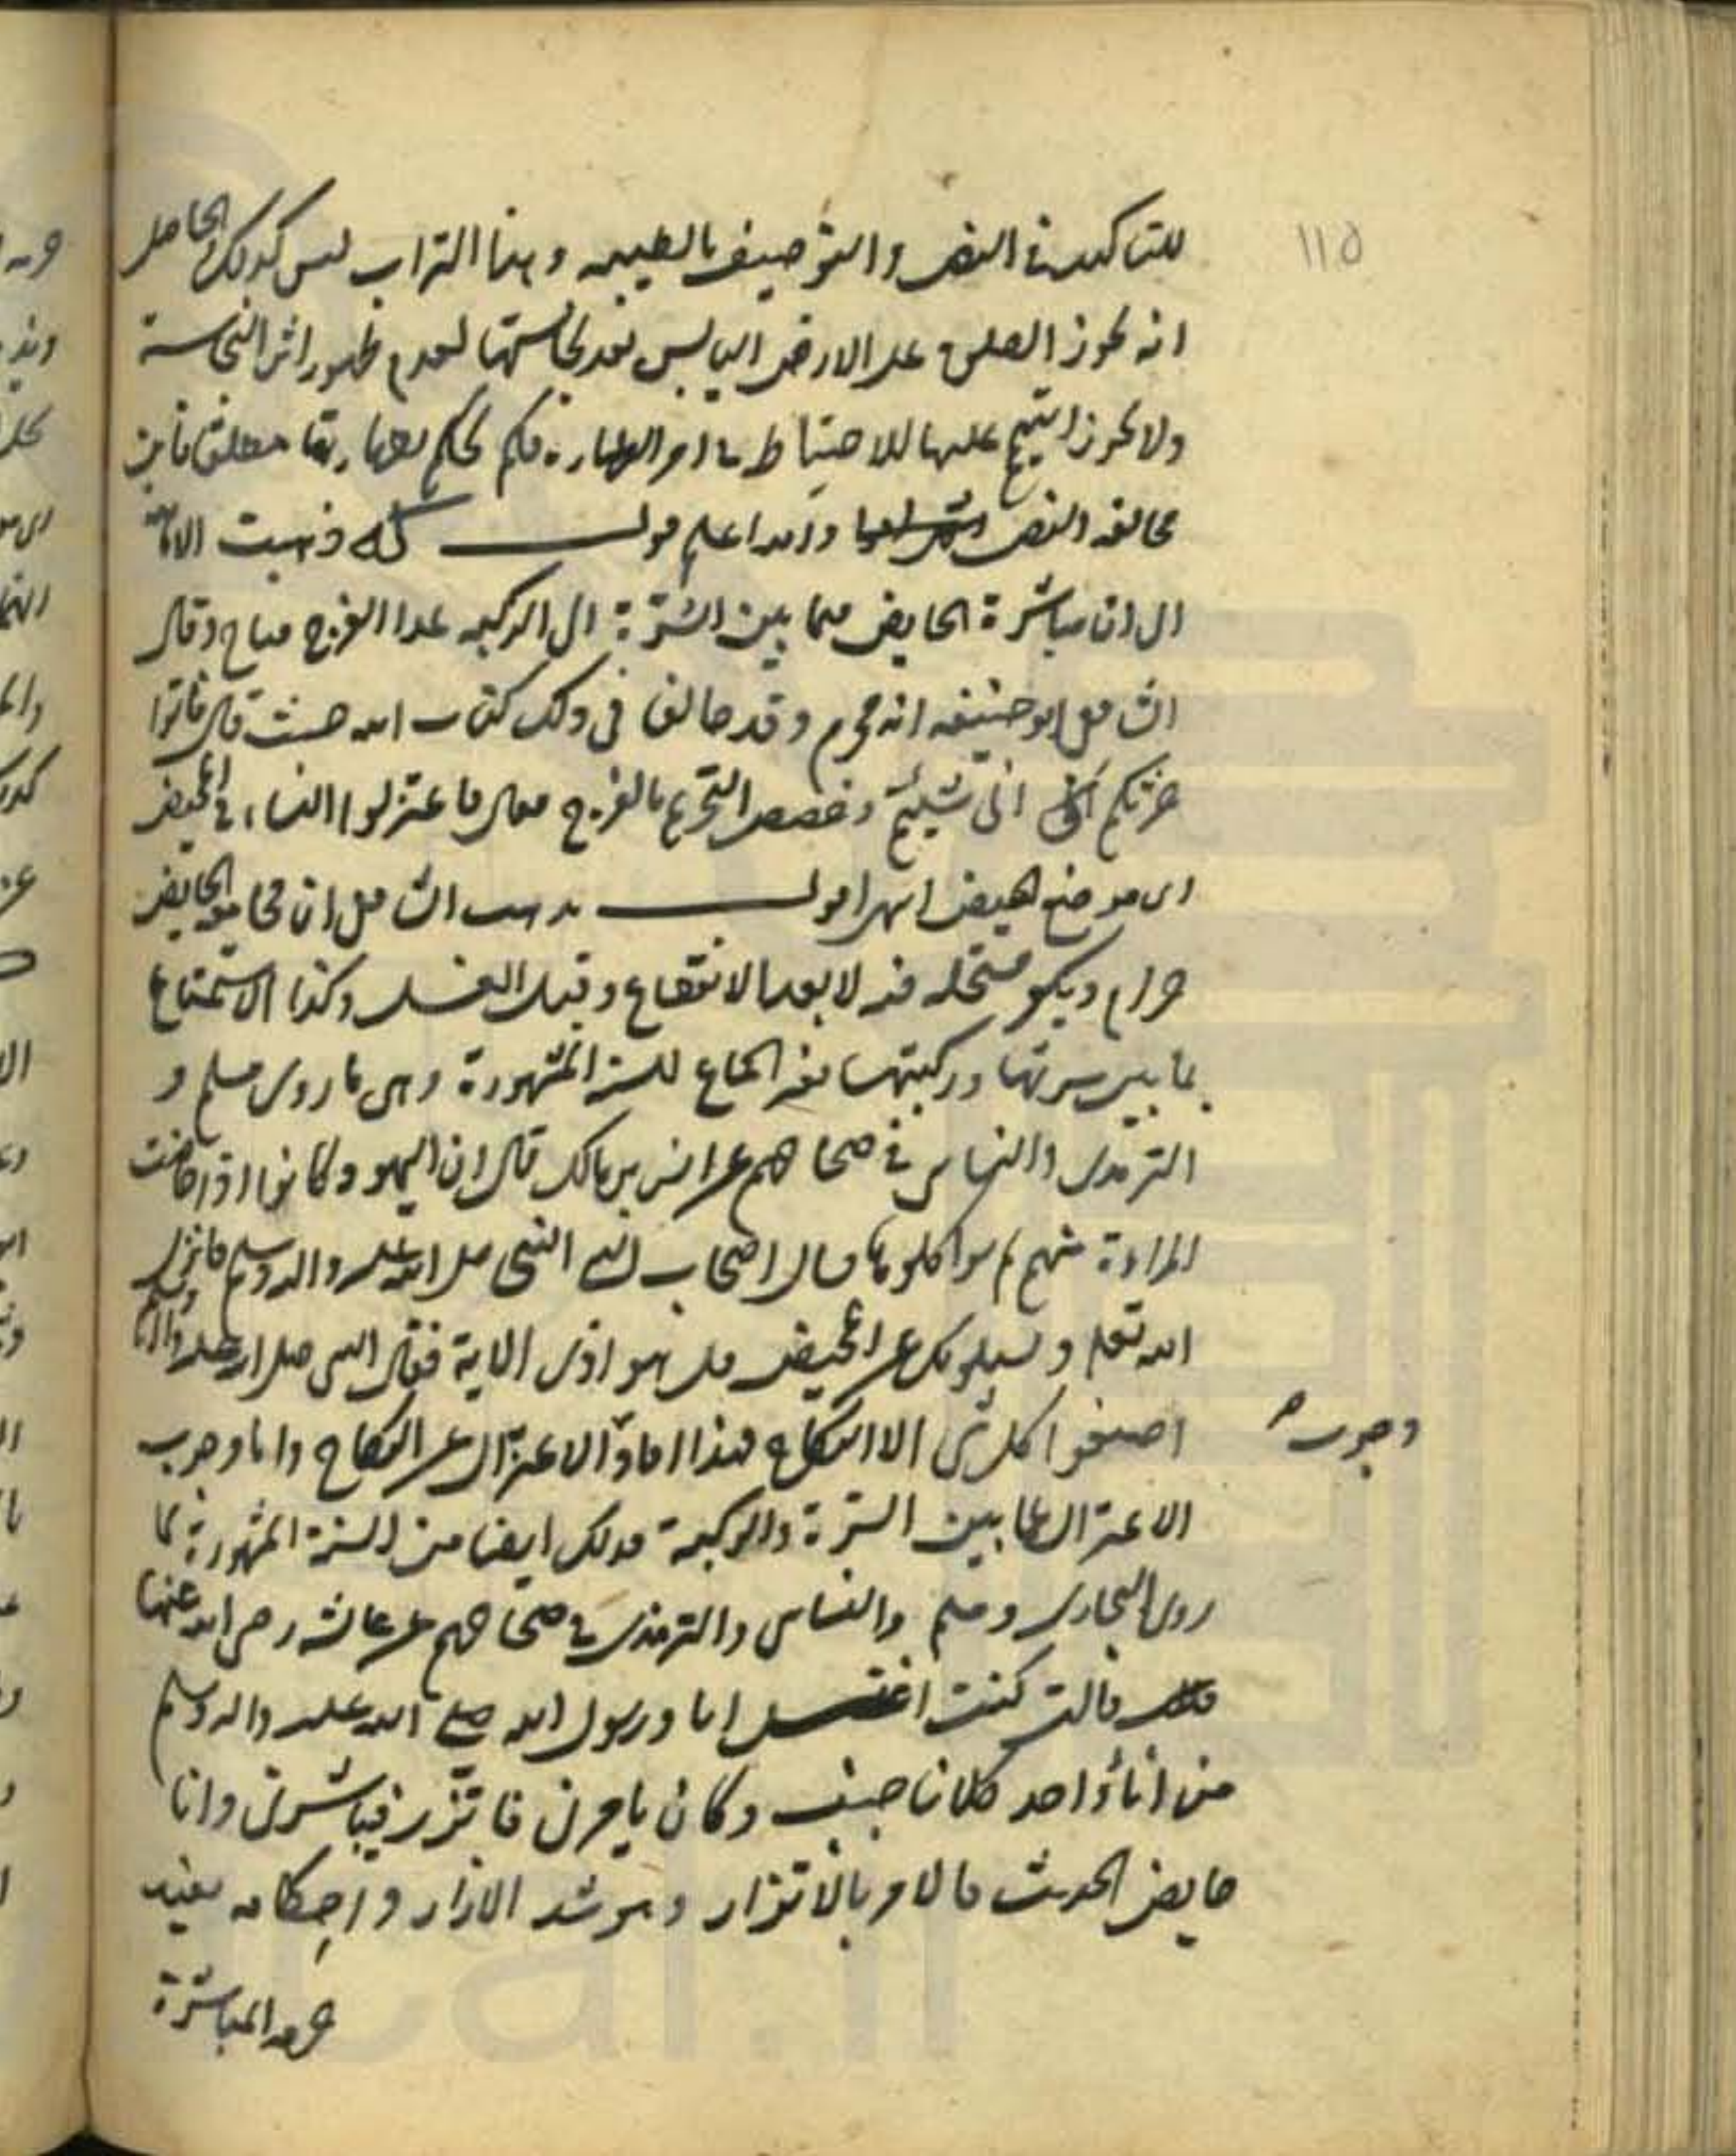 ١١٥
للتاكيد في النص والتوصيف بالطيبه وهنا التراب ليس كذلك الحاصل
انه يجوز الصلوة على الارض اليابس بعد نجاستها لعدم ظهور اثر النجاسة
ولا يجوز التيمم عليها للاحتياط في امر الطهارة فلم يحكم بطهارتها مطلقا فاين
مخالفه النص والله اعلم قوله ذهبت الامامية
الى ان مباشرة الحايض فيما بين السرة الى الركبه عدا الفرج مباح وقال
الشافعي ابو حنيفه انه محرم وقد خالفا في ذلك كتاب الله حيث قال فاتوا
حرثكم انى شيئتم وخصص التحريم بالفرج فقال فاعتزلوا النساء في المحيض
اى موضع الحيض انتهى اقول مذهب الشافعي ان مجامعة الحايض
حرام ويكفر مستحله فيه لا بعد الانقطاع وقبل الغسل وكذا الاستمتاع
بما بين سرتها وركبتها بغير الجماع للسنة المشهورة وهى ما روى مسلم و
الترمذى والنساى في صحاحهم عن انس بن مالك قال ان اليهود كانوا اذا حاضت
المراءة منهم لم يواكلوها فسال اصحاب النبي النبى صلى الله عليه واله وسلم فانزل
الله تعلى ويسيلونك عن المحيض قل هو اذى الاية فقال النبى صلى الله عليه واله وسلم
اصنعوا كل شى الا النكاح فهذا افاد الاعتزال عن النكاح واما وجوب
وجوب
الاعتزال عما بين السرة والركبة فذلك ايضا من السنة المشهورة لما
روى البخارى ومسلم والنساى والترمذى في صحاحهم عن عايشه رضى الله عنها
قالت كنت اغتسل انا ورسول الله صلى الله عليه واله وسلم
من اناء واحد كلانا جنب وكان يامرنى فاتزر فيباشرنى وانا
حايض الحديث فالامر بالاتزار وهو شد الازار واحكامه يفيد
حرمه المباشرة